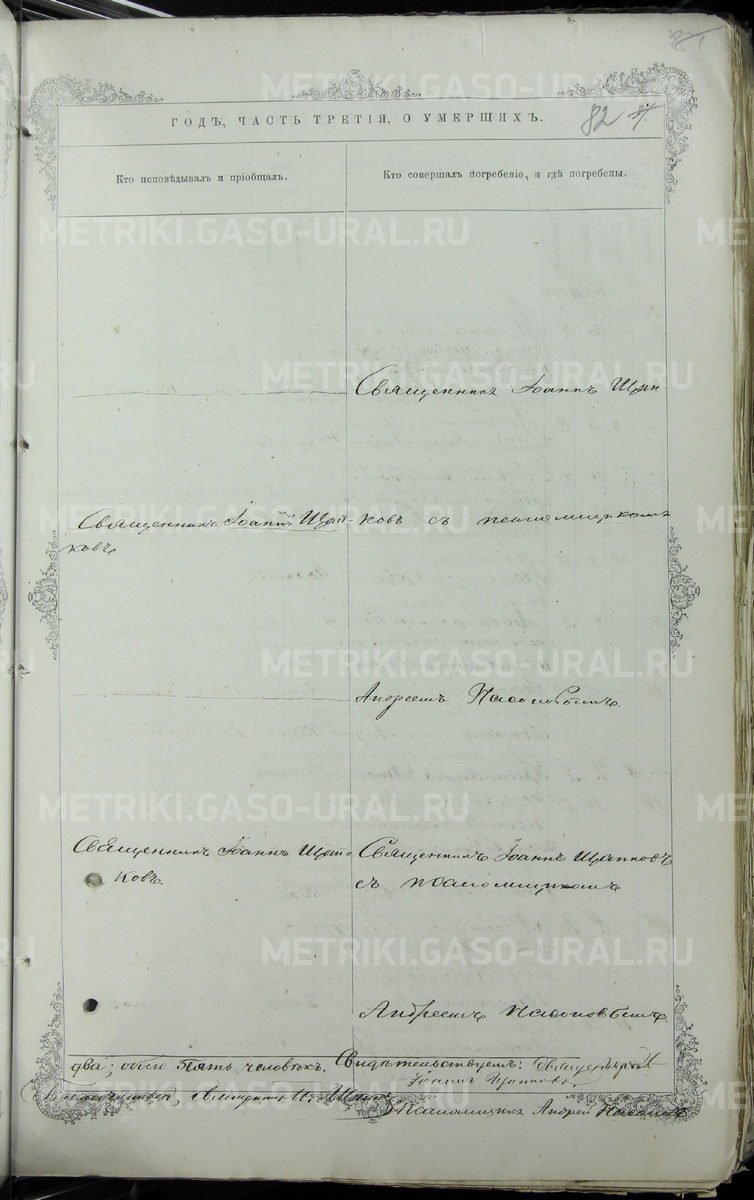 82
ГОДЪ, ЧАСТЬ ТРЕТІЯ, О УМЕРШИХЪ.
Кто исповѣдывалъ и пріобщалъ.
Кто совершалъ погребеніе, и гдѣ погребены.
Священникъ Іоаннъ Щап-
Священникъ Іоаннъ Щап-
ковъ
ковъ съ псаломщикомъ
Андреемъ Насоновымъ.
Священникъ Іоаннъ Щап-
ковъ.
Священникъ Іоаннъ Щапковъ
съ псаломщикомъ
Андреемъ Насоновымъ.
два; обоего пять человѣкъ. Свидѣтельствуемъ: Священникъ
Іоаннъ Щапковъ
Псаломщикъ Андрей Насоновъ
METRIKI.GASO-URAL.RU